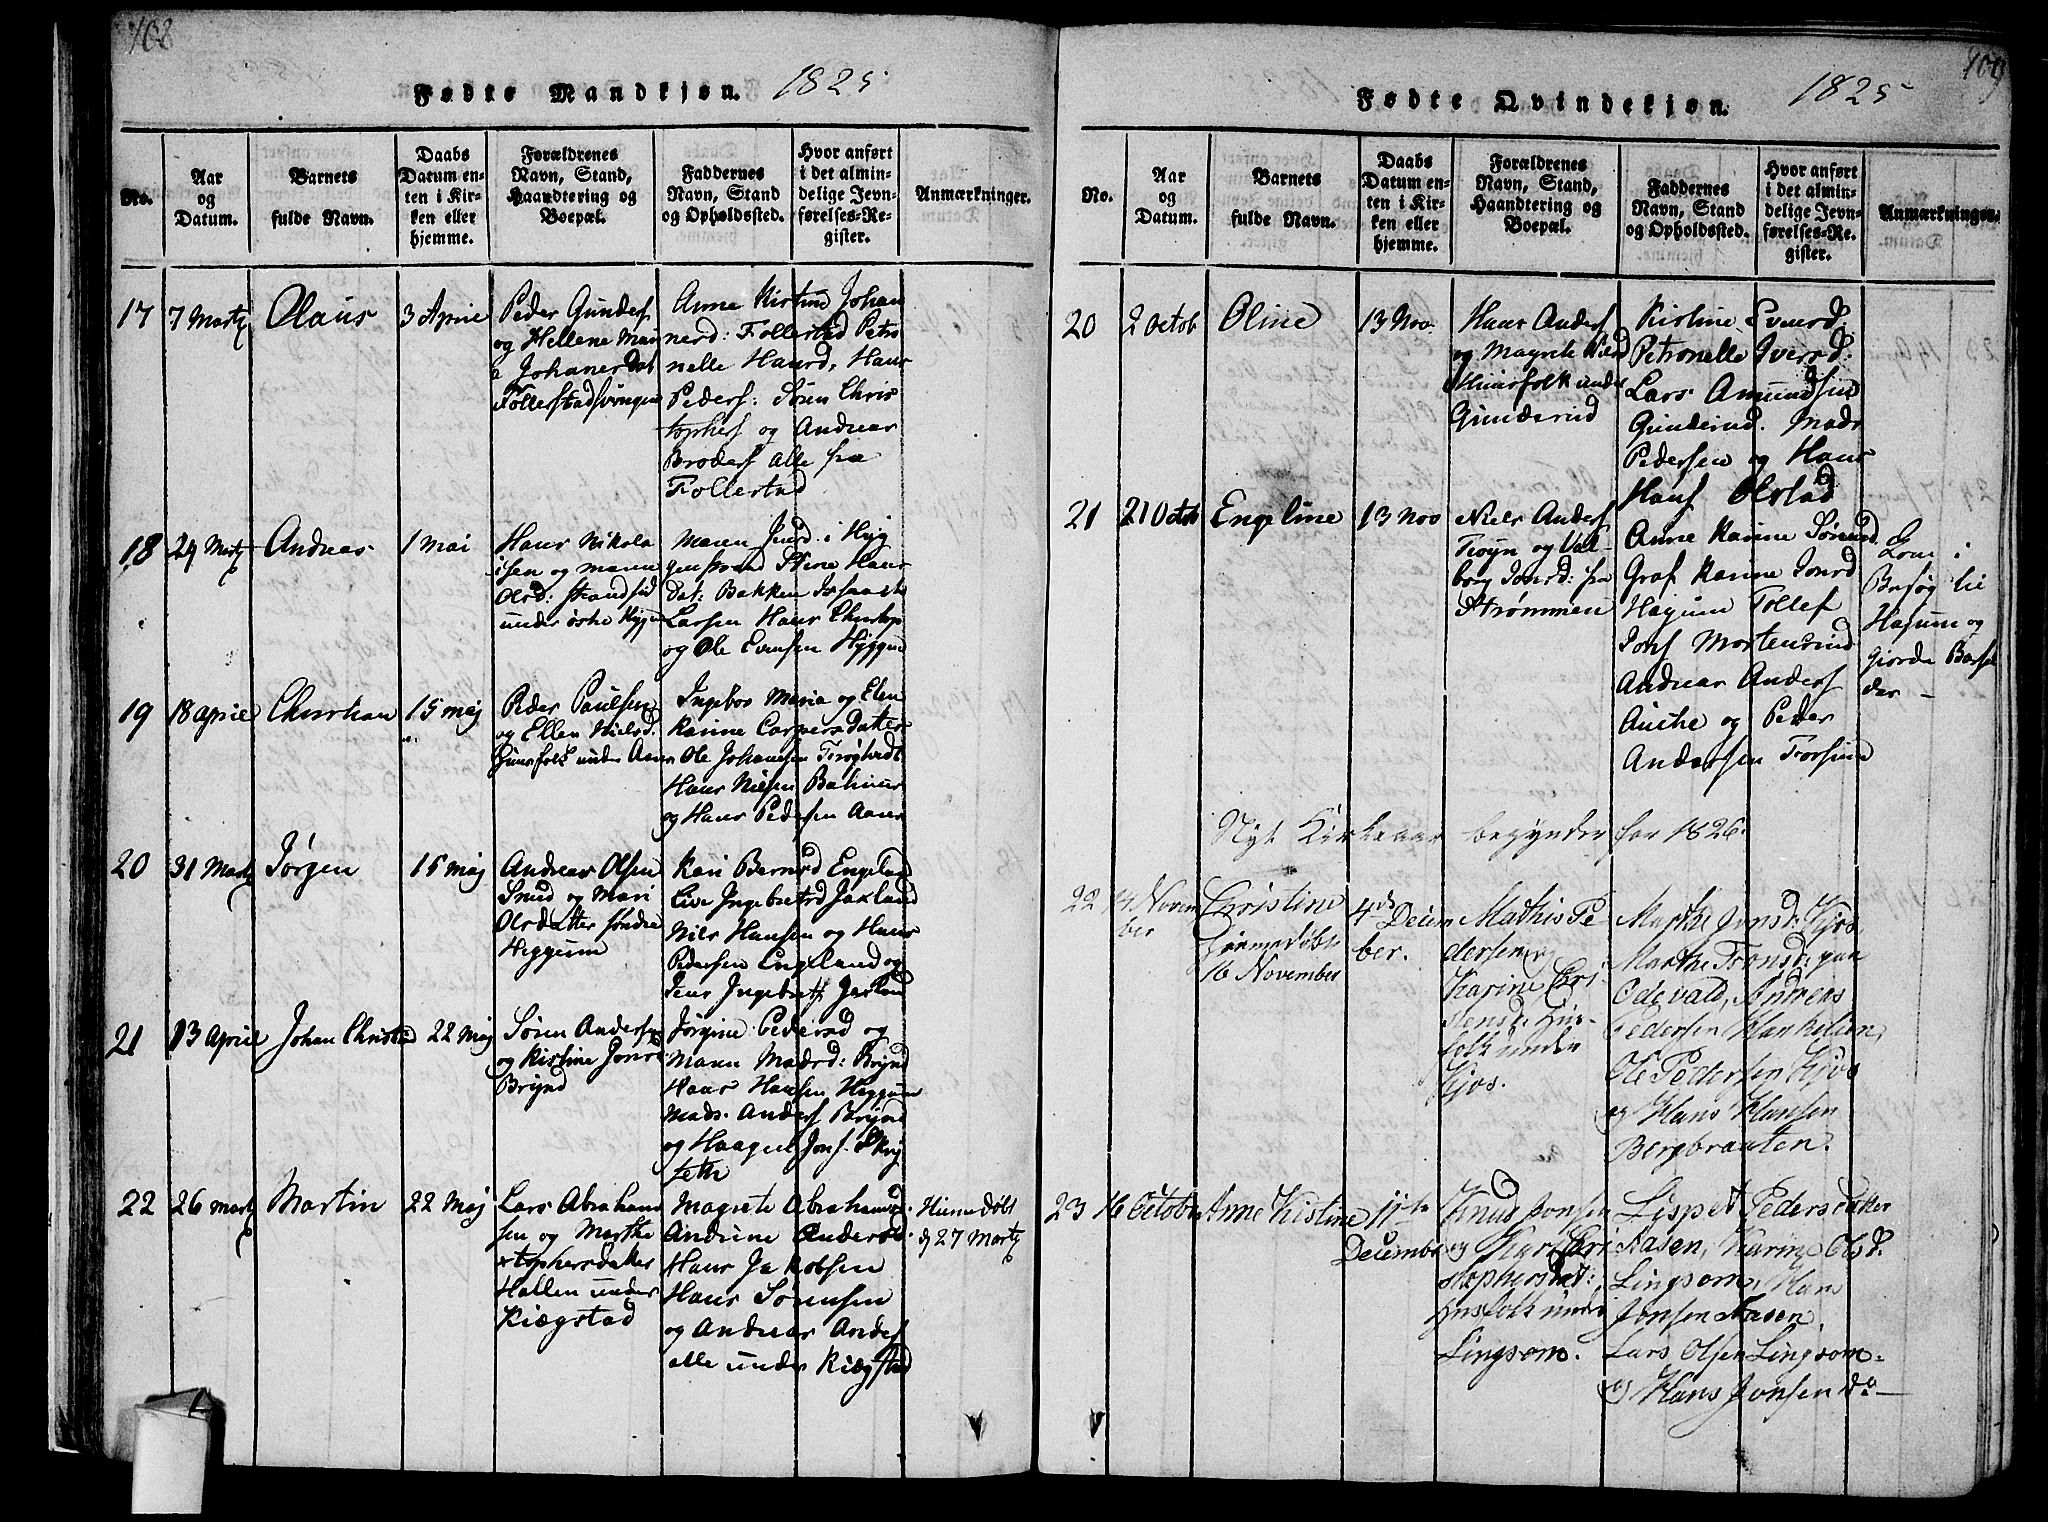 108
Fødte Mandkjøn. 1825
No.
Aar
og
Datum.
Barnets
fulde Navn.
Daabs
Datum en-
ten i Kir-
ken eller
hjemme.
Forældrenes
Navn, Stand,
Haandtering og
Boepæl.
Faddernes
Navn, Stand
og Opholdssted.
Hvor anført
i det almin-
delige Jevn-
førelses-Re-
gister.
Anmærkninger.
17
7 Martz
Olaus
3 Aprile
Peder Gunders
og Hellene Mari
a Johanes Dat
Follerstadsvingen
Anne Kistine Johan
nerd: Follerstad Petro
nelle Hansd, Hans
Peders: Søren Chris
tophers og Andreas
Broders alle fra
Follestad
18
24 Martz
Andreas
1 Mai
Hans Nikola
isen og Maren
Olsd: Strandsid
under østre Hggn
Maren Jensd: i Hyg
gen strand Stine Hans
Dat: Bakken Isaach
Larsen Hans Christop
og Ole Evensen Hyggen
19
18 Aprile
Christian
15 Maj
Peder Paulsen
og Ellen Nielsd.
Huusfolk under Aaner
Ingebor Maria og Elen
Karine Caspers Datter
Ole Johansen Trøgstedt
Hans Nilsen
og Hans Pedersen Aaner
20
31 Martz
Jørgen
15 Maj
Andreas Olsen
Snud og Mari
Olsdatter søndre
Heggum
Kari Bernsd Engeland
Live Ingebretsd Jaxland
Nils Hansen og Hans
Pedersen Engeland og
Jens Ingebretss Jaxland
21
13 Aprile
Johan Christia
22 Maj
Søren Andersen
og Kistine Jonsd
Brynd
Jørgine Pedersd og
Maren Madsd: Brynd
Haar Hansen Heggum
Mads Anders Brynd
og Haagen Jons. Skry
seth
22
26 Martz
Martin
22 Maj
Lars Abraham
sen og Marthe
xtophersdatter
Hallen under
Kiægstad
Magrete Abrahamsd
Andrine Andersd.
Hans Jakobsen
Hans Sørensen
og Andreas Anders
alle under Kiægstad
Hiemedøbt
d 27 Martz
109
Fødte Qvindekjøn. 1825
No.
Aar
og
Datum.
Barnets
fulde Navn.
Daabs
Datum en-
ten i Kir-
ken eller
hjemme.
Forældrenes
Navn, Stand,
Haandtering og
Boepæl.
Faddernes
Navn, Stand
og Opholdssted.
Hvor anført
i det almin-
delige Jevn-
førelses-Re-
gister.
Anmærkninger.
20
2 Octob
Oline
13 Nov.
Hans Anders
og Magrete Nilsd
Huusfolk under
Gunderud
Kistine Evensd.
Petronelle Iversd:
Lars Amundsen
Gunderud. Mads
Pedersen og Hans
Hans Olstad
21
21 Octob
Engeline
13 Nov
Niels Anders
Troyn og Val-
borg Jonsd: fra
Strømmen
Anne Karine Sørensd
Graf Karine Jonsd
Hagum Tollef
Jons Mortensrud
Andreas Anders
Auche og Peder
Andersen Torsrud
Kom i
Besøg til
Hagum og
giorde Barsel
der —
Nyt Kirkeaar begynder for 1826.
22
14 Novem
ber
Christine
Hiemmedøbt
16 November
4de Decem
ber.
Mathis Pe
dersen og
Karine Chri
stensd: Hus-
folk under
Kjøs.
Marthe Jensd: Kjøs,
Marthe Tronsd: paa
Odevald, Andreas
Pedersen Hankelien,
Ole Pedersen Kjøs
og Hans Hansen
Bergbrauten.
23
16 October
Anne Kistine
11te
December
Knud Jonsen
og Kari Chri
stophersdat:
Husfolk under
Lingsom.
Lispet Pedersdatter
Aasen, Karine Olsd.
Lingsom, Hans
Jonsen Aasen,
Lars Olsen Lingsom-
og Hans Jonsen do—